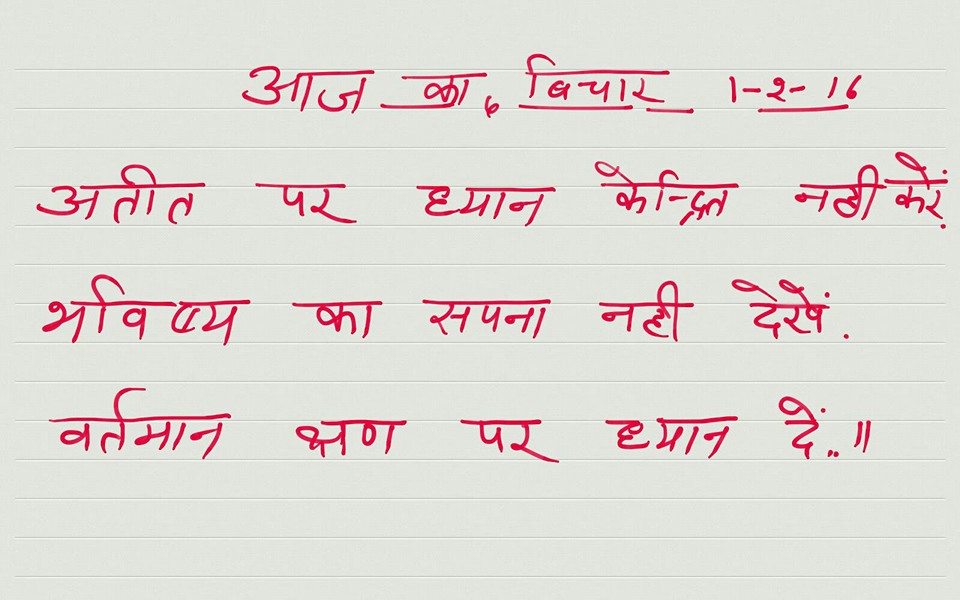 आज का, विचार 1-2-16
अतीत पर ध्यान केन्द्रित नही करें.
भविष्य का सपना नही देखें.
वर्तमान क्षण पर ध्यान दें..॥